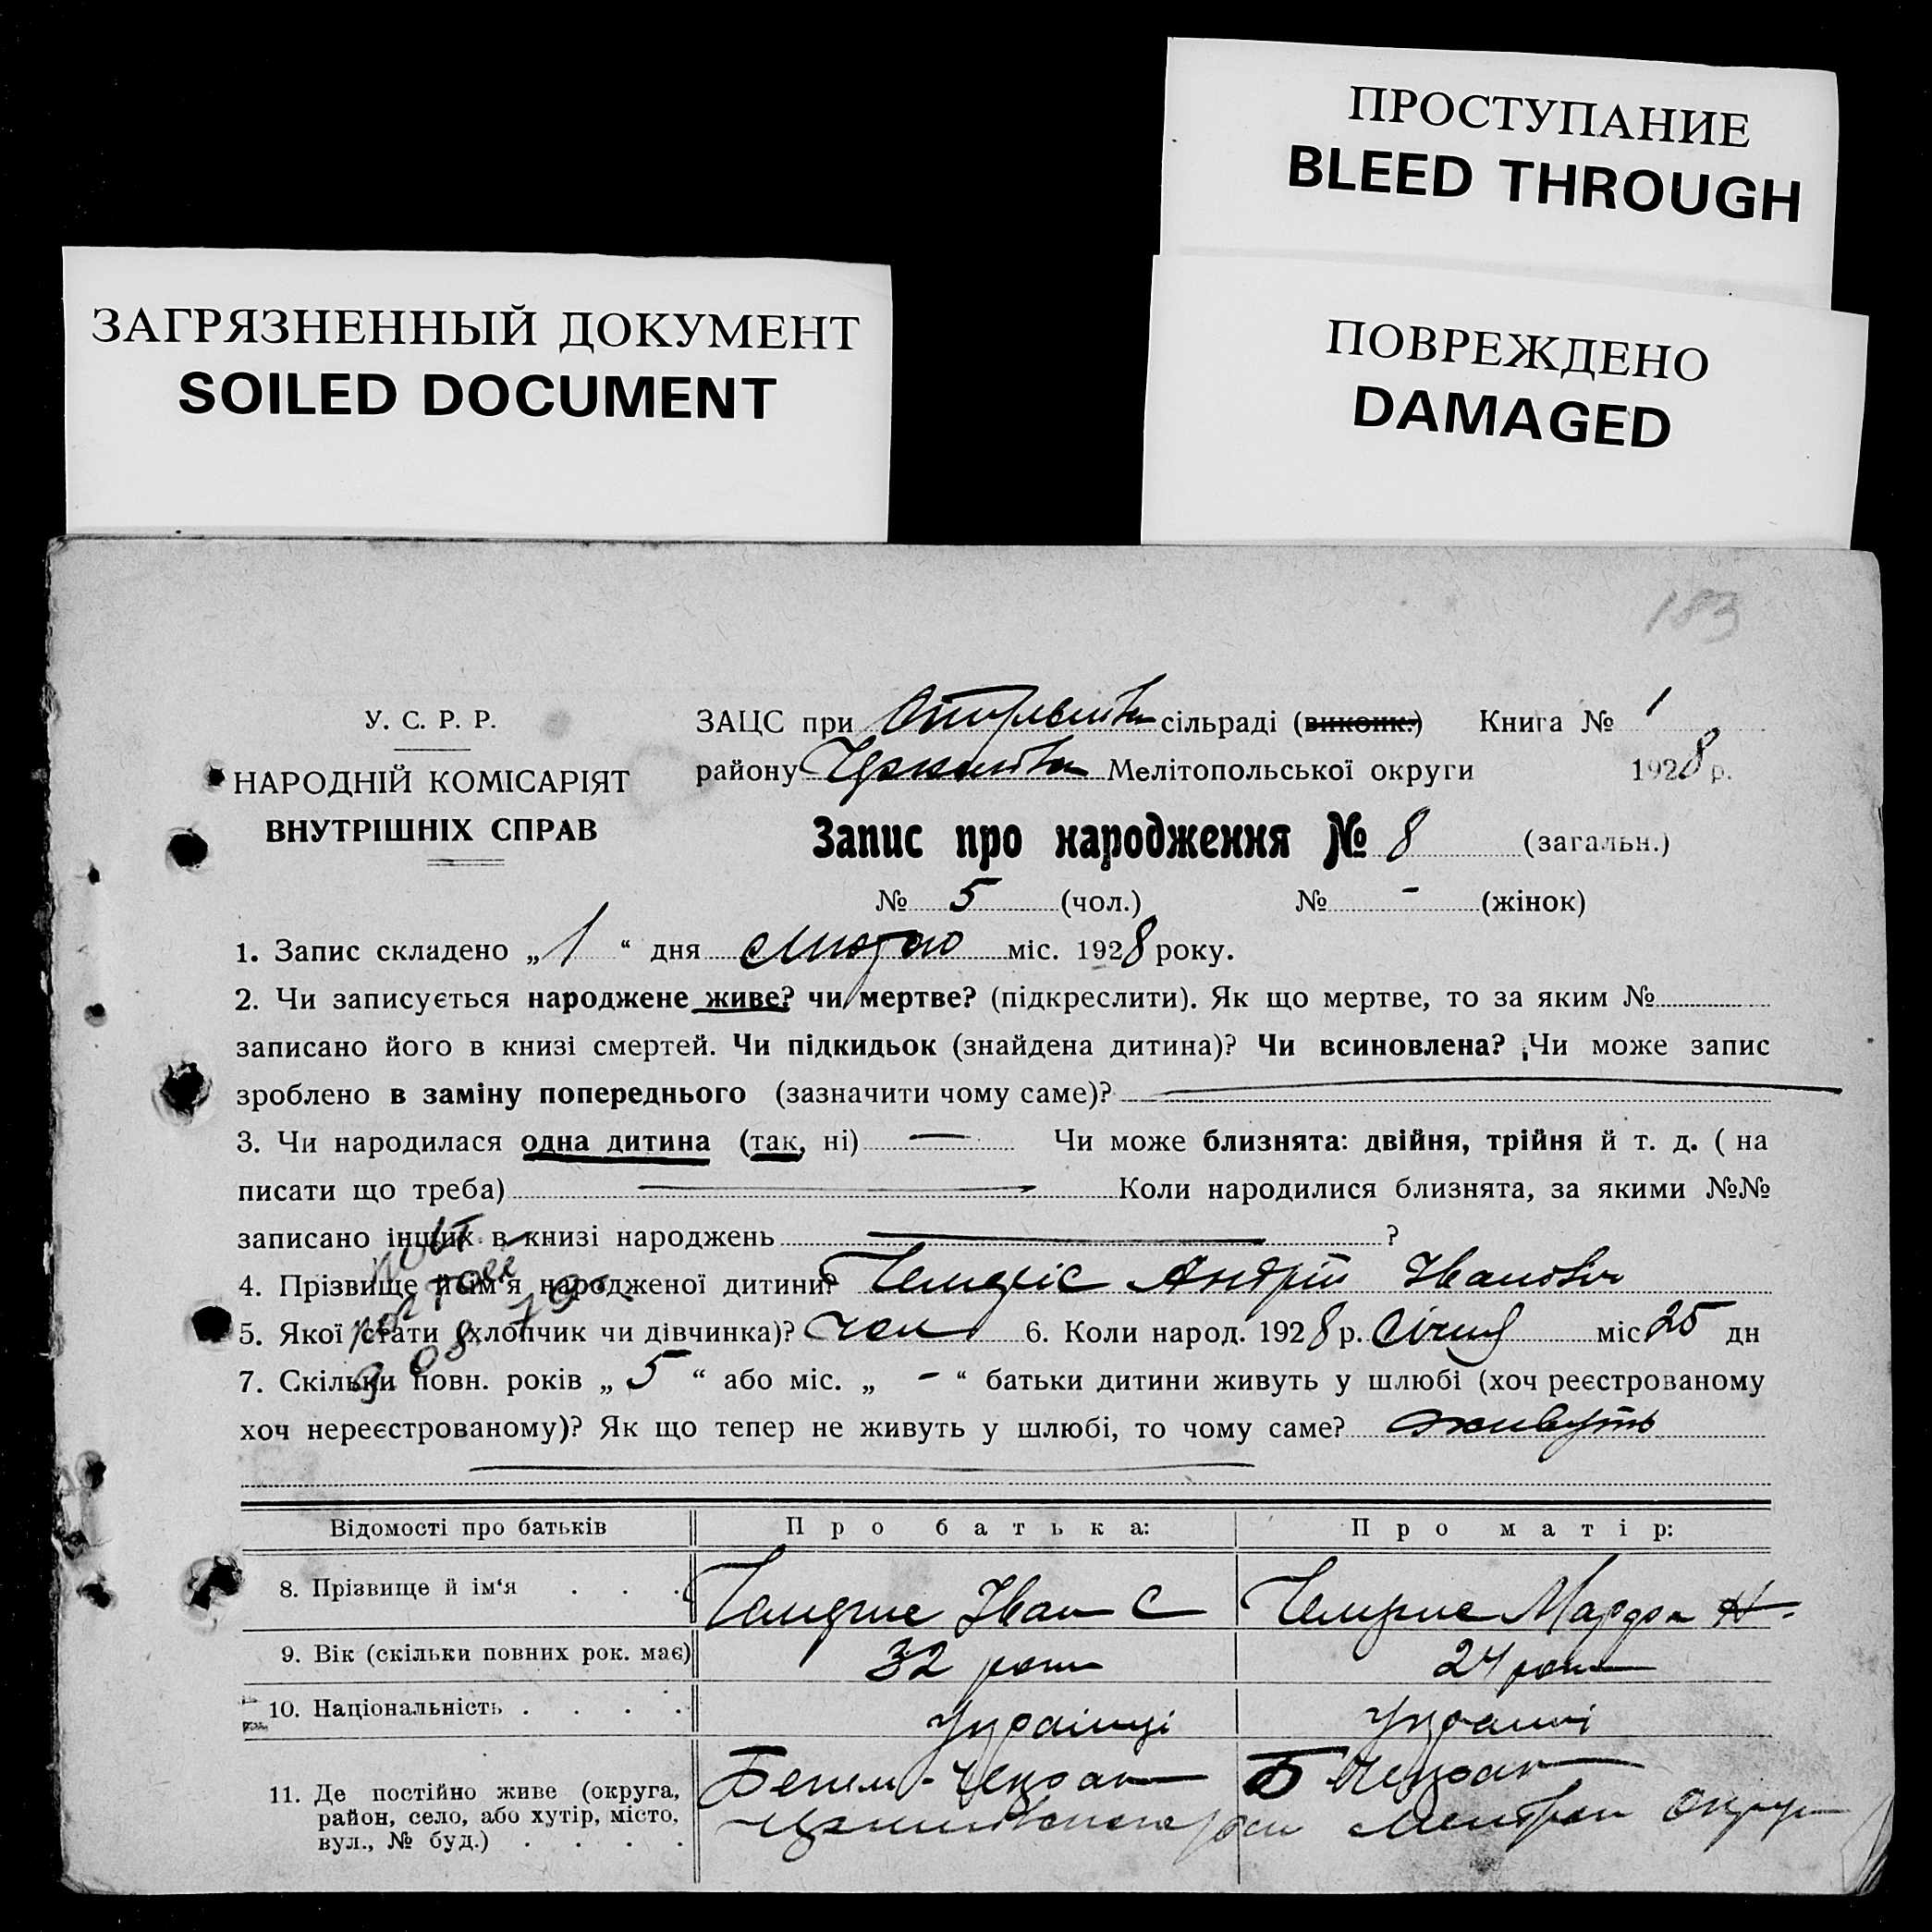 ПРОСТУПАНИЕ
BLEED THROUGH
ЗАГРЯЗНЕННЫЙ ДОКУМЕНТ
SOILED DOCUMENT
ПОВРЕЖДЕНО
DAMAGED
183
У. С. Р. Р.
НАРОДНІЙ КОМІСАРІЯТ
ВНУТРІШНІХ СПРАВ
ЗАЦС при сільраді (виконк.) Книга № 1
району Мелітопольської округи 1928 р.
Запис про народження № 8 (загальн.)
№ 5 (чол.) № - (жінок)
1. Запис складено „ 1 “ дня Лютого міс. 1928 року.
2. Чи записується народжене живе? чи мертве? (підкреслити). Як що мертве, то за яким №
записано його в книзі смертей. Чи підкидьок (знайдена дитина)? Чи всиновлена? Чи може запис
зроблено в заміну попереднього (зазначити чому саме)?
3. Чи народилася одна дитина (так, ні) — Чи може близнята: двійня, трійня й т. д. ( на
писати що треба) Коли народилися близнята, за якими №№
записано інших в книзі народжень ?
4. Прізвище й ім‘я народженої дитини? Андрій Іванович
5. Якої стати (хлопчик чи дівчинка)? чол 6. Коли народ. 1928 р. Січня міс 25 дн
7. Скільки повн. років „ 5 “ або міс. „ - “ батьки дитини живуть у шлюбі (хоч реєстрованому
хоч нереєстрованому)? Як що тепер не живуть у шлюбі, то чому саме? живуть
Відомості про батьків Про батька: Про матір:
8. Прізвище й ім‘я . . . Іван С
9. Вік (скільки повних рок. має) 32 роки 24 роки
10. Національність . . . . Українці
11. Де постійно живе (округа,
район, село, або хутір, місто,
вул., № буд.) . . . .